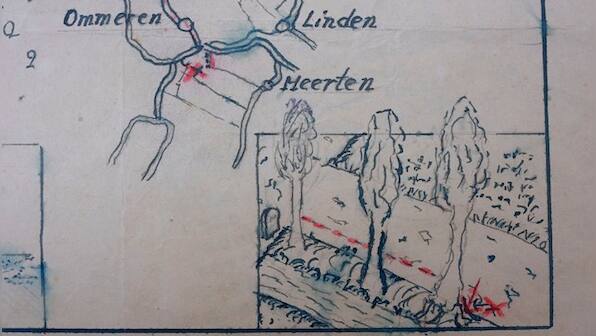 Ommeren
Linden
Meerten